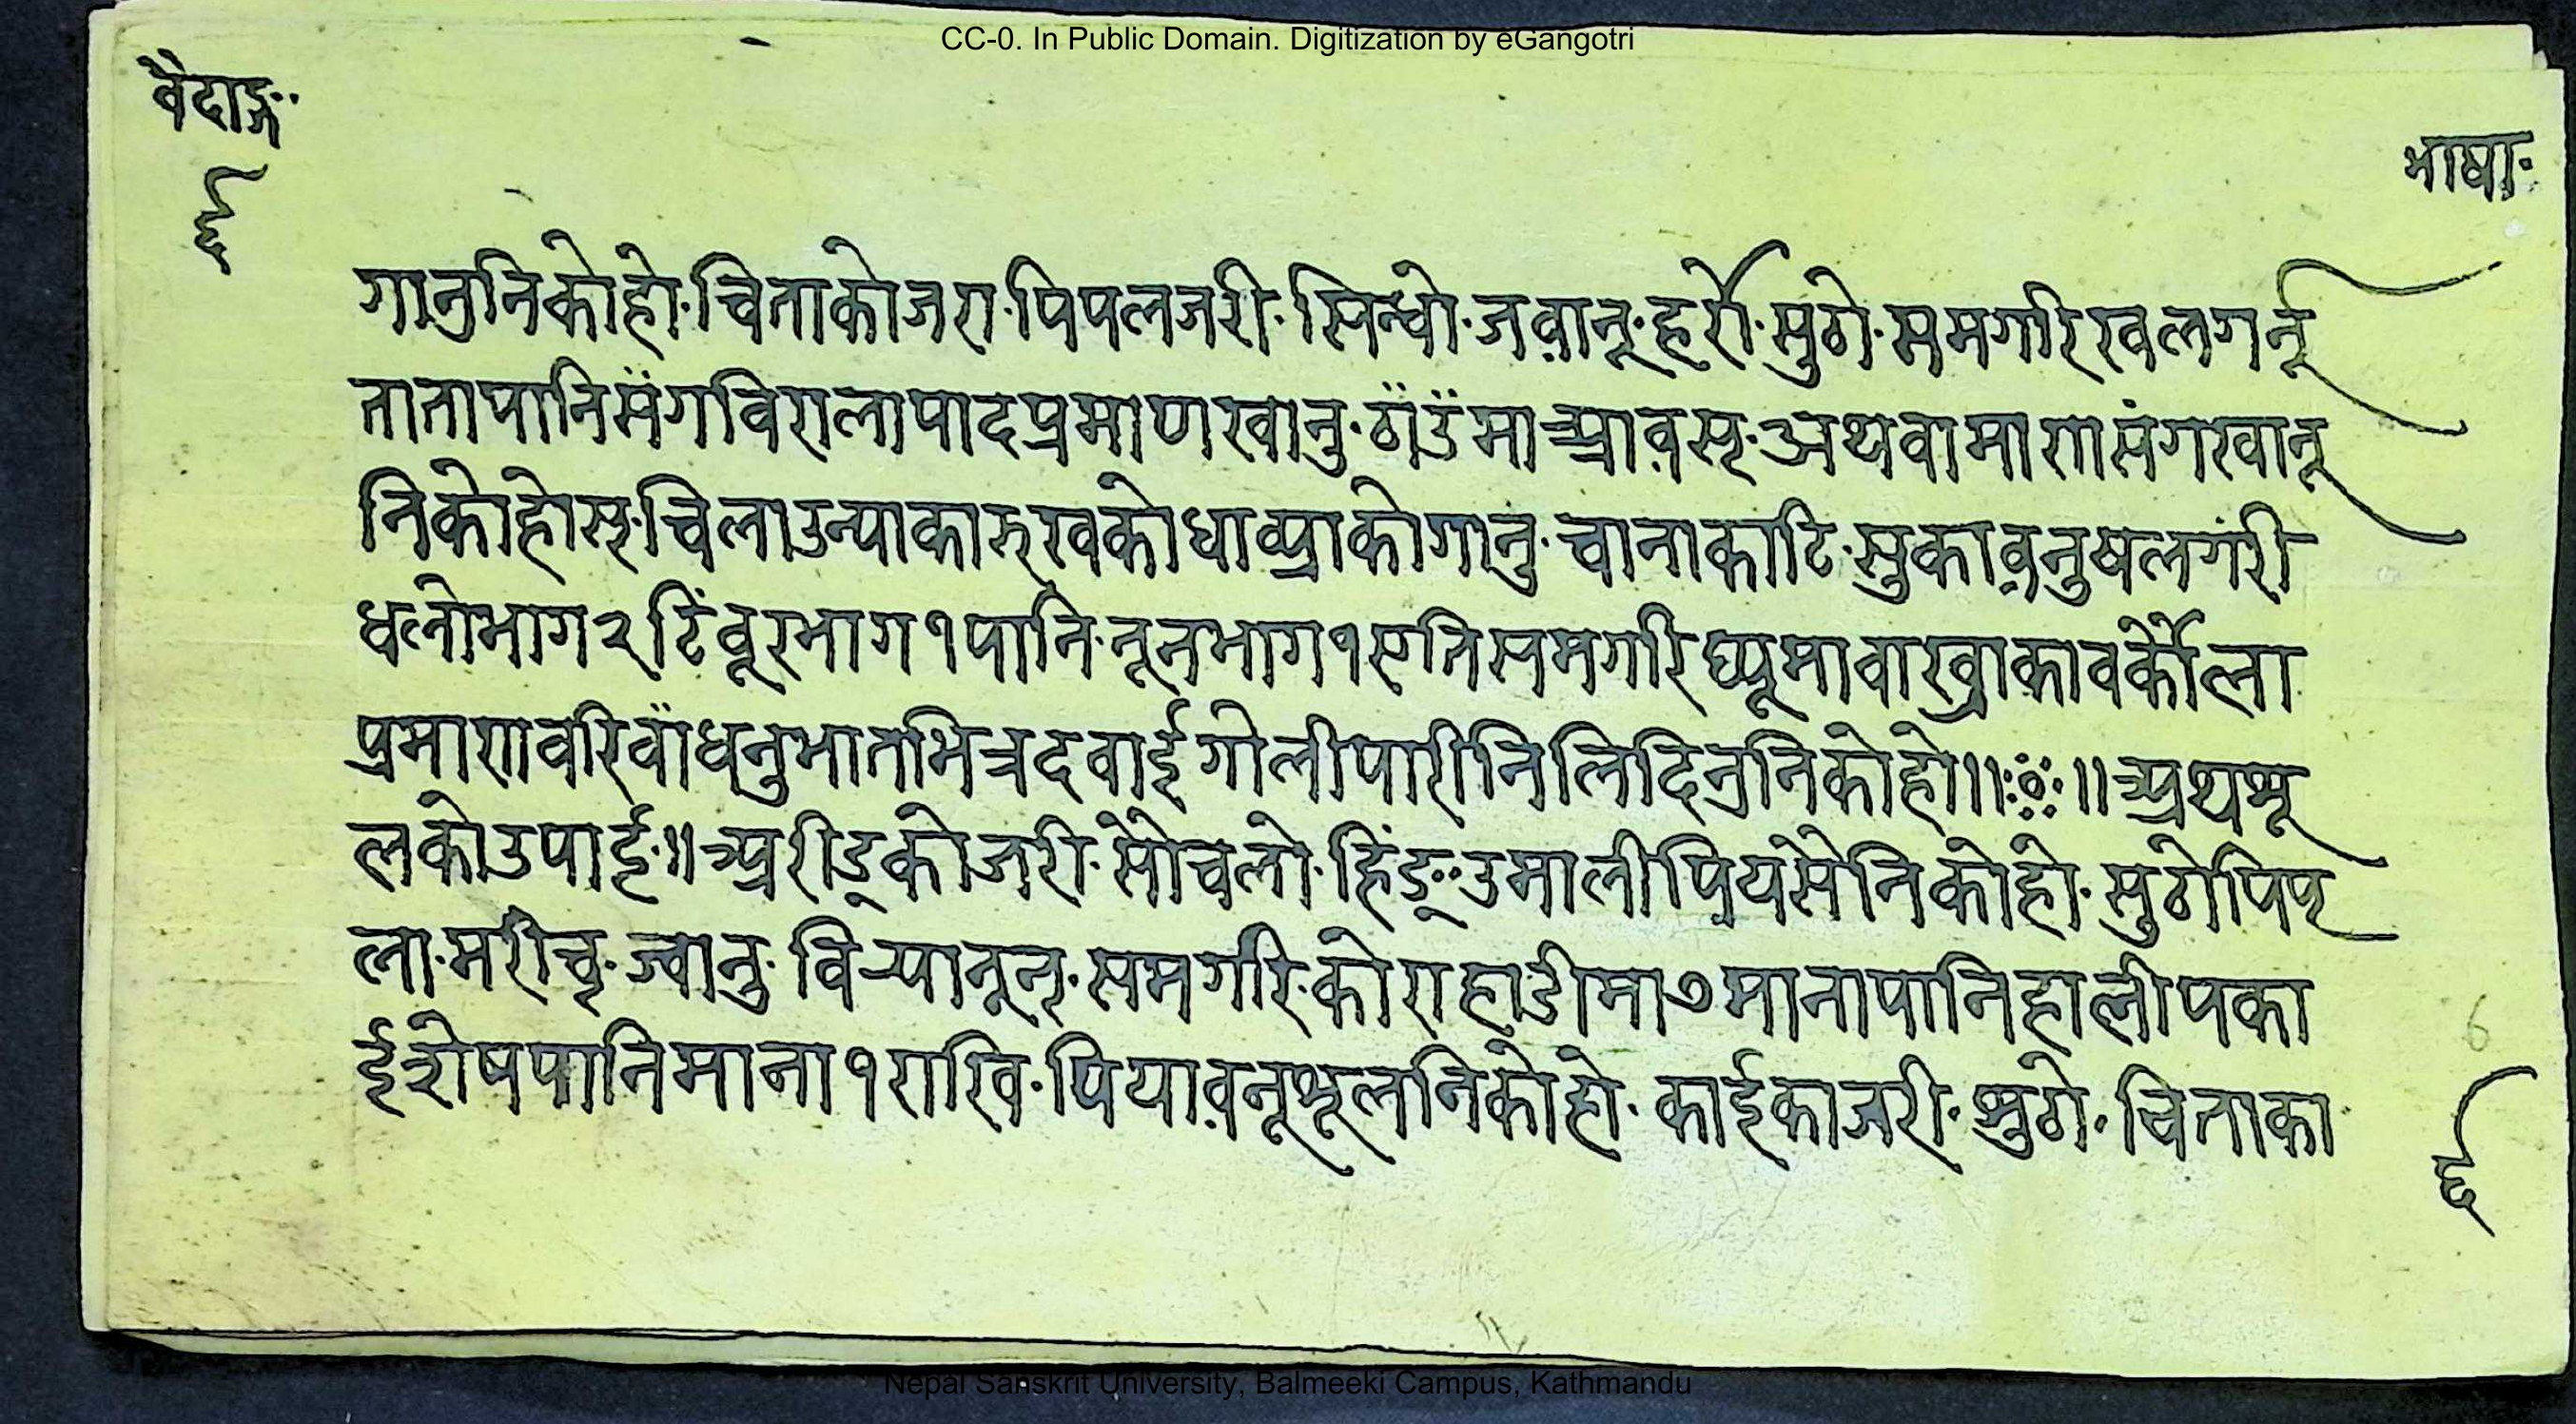 CC-0. In Public Domain. Digitization by eGangotri
वैदाङ्ग·
भाषा·
६
गानुनिकोहो·चिताकोजरा·पिपलजरी·सिन्धो·जवानू·हर्रो·सुठो·समगरिखलगर्नू
तातापानिसँगविरालापादप्रमाणखानु·ठाँउँमाआवस्·अथवामागासंगखानू
निकोहोस्·चिलाउन्याकारुखकोधाव्प्राकोगानु·चानाकाटि·सुकावनुषलगरी
धलोभाग२टिंवूरभाग१पानि·नूनभाग१एतिसमगरिघ्यूमावाख्राकावर्कौला
प्रमाणवरिवाँधनुभातभित्रदवाईगोलीपारीनिलिदिनुनिकोहो॥ः०ः॥अथशू
लकोउपाई॥अरीड्कोजरी·सोचलो·हिंङ्·उमालीपियेसेनिकोहो·सुठोपिप
ला·मरीच्·ज्वानु·विऱ्यानून्·समगरि·कोराहाडीमा७मानापानिहालीपका
ईशेषपानिमाना१राखि·पियावनूशूलनिकोहो·काईकाजरी·शुठो·चिताका
6
६
Nepal Sanskrit University, Balmeeki Campus, Kathmandu